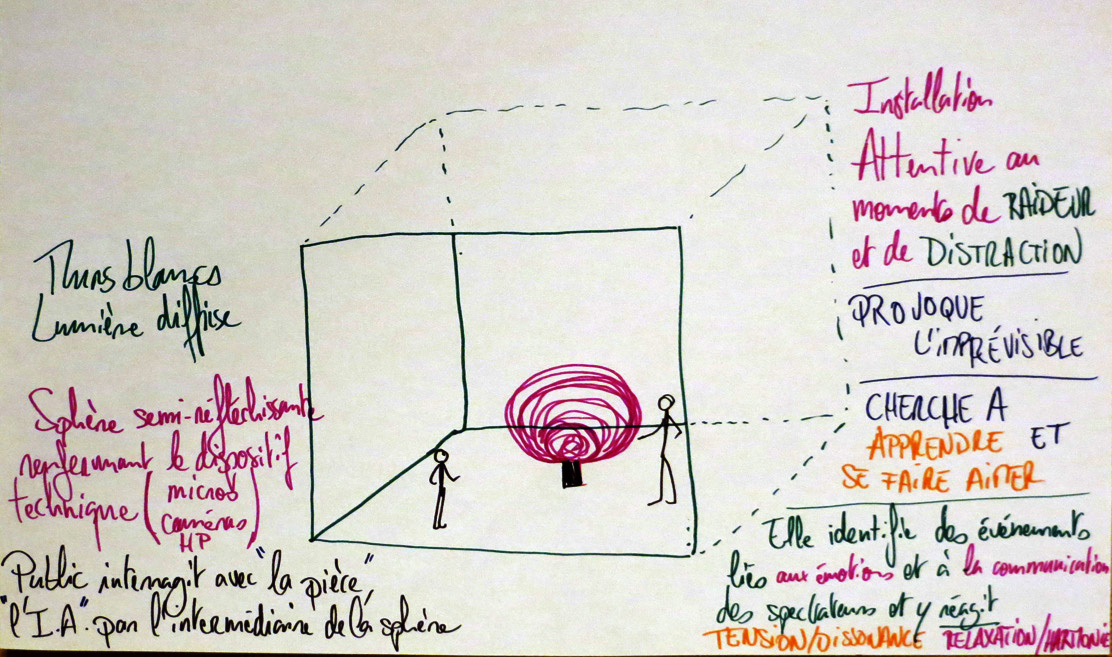 Murs blancs
Lumière diffuse
Sphère semi-réfléchissante
renfermant le dispositif
technique (micros
caméras
HP)
Public interragit avec "la pièce",
"l'I.A." par l'intermédiaire de la sphère
Installation
Attentive au
moments de RAIDEUR
et de DISTRACTION
PROVOQUE
L'IMPRÉVISIBLE
CHERCHE A
APPRENDRE ET
SE FAIRE AIMER
Elle identifie des événements
liés aux émotions et à la communication
des spectateurs et y réagit
TENSION/DISSONANCE RELAXATION/HARMONIE